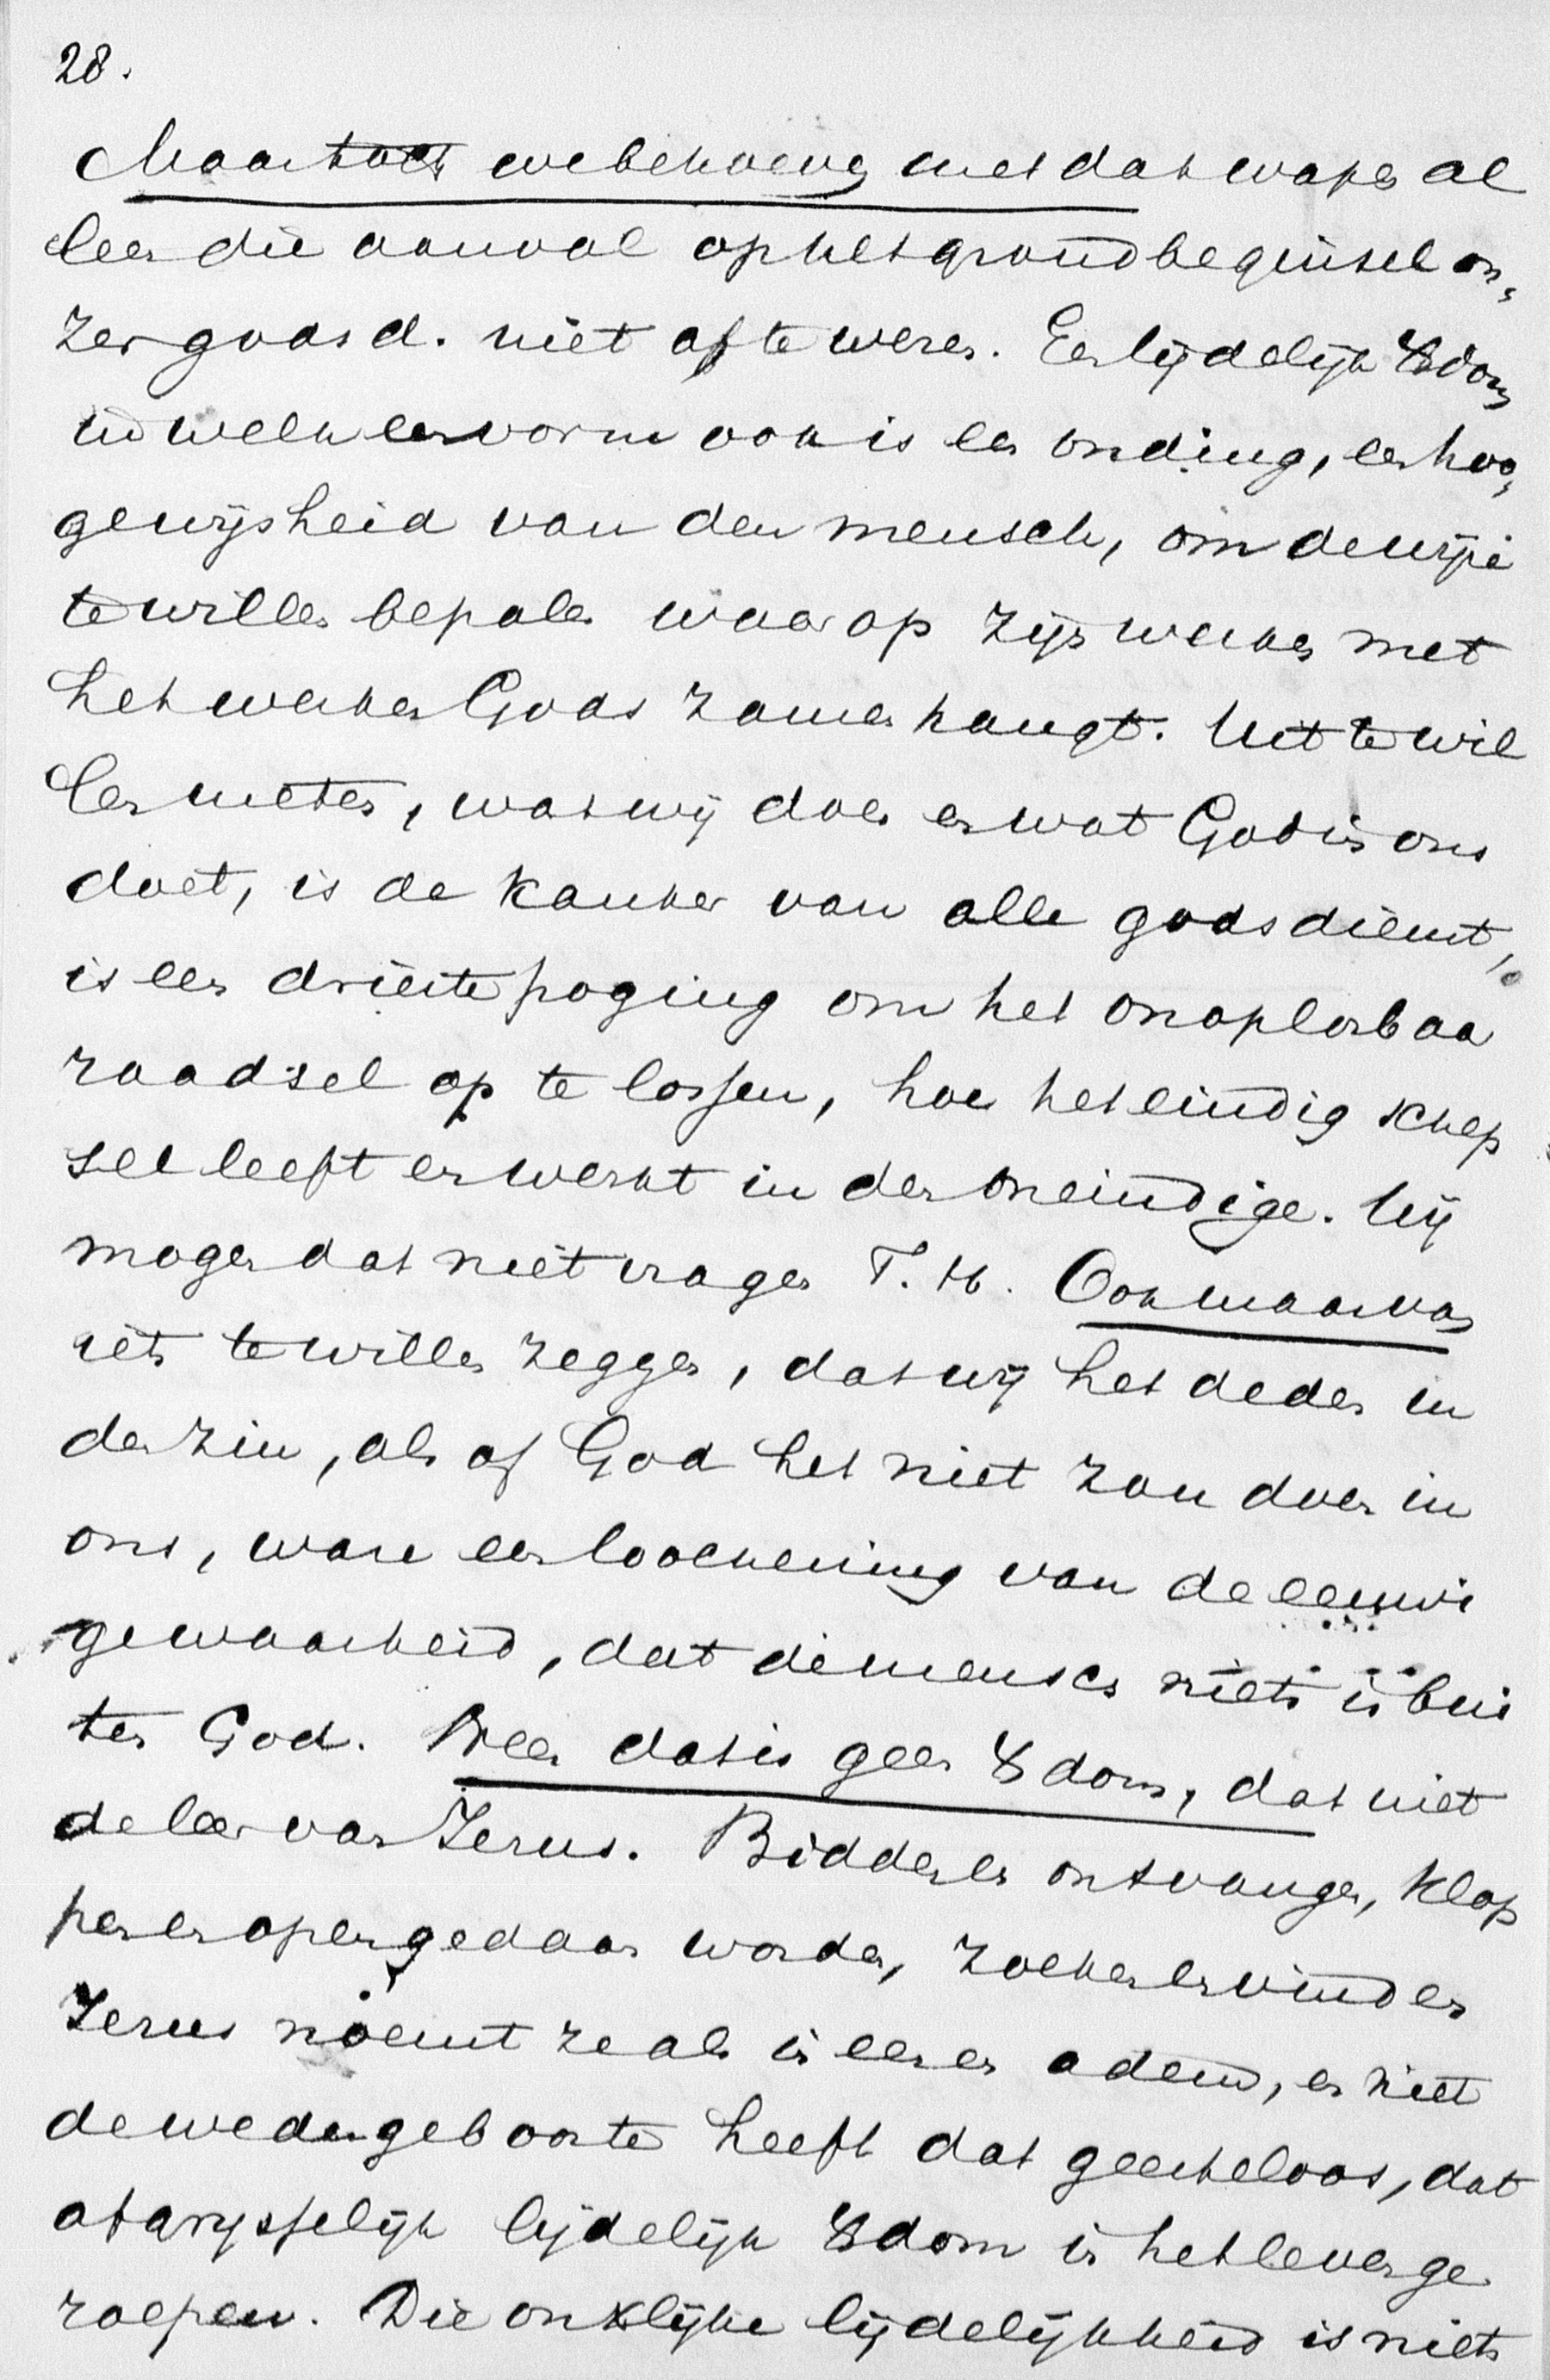 28.
Maar toch we behoeven met dat wapen al
leen die aanval op het grondbeginsel on,
zer godsd. niet af te weren. Een lijdelijk Xdom
in welken vorm ook is een onding, een hoo,
gewijsheid van den mensch, om de wijze
te willen bepalen waarop zijn werken met
het werken Gods zamenhangt. Uit te wil
len meten, wat wij doen en wat God in ons
doet, is de kanker van alle godsdienst,
is een drieste poging om het onoplosbaa
raadsel op te lossen, hoe het eindig schep
sel leeft en werkt in den oneindige. Wij
mogen dat niet vragen T. H. Ook maar van
iets te willen zeggen, dat wij het deden in
den zin, als of God het niet zou doen in
ons, ware een loochening van de eeuwi
ge waarheid, dat de mensch niets is bui
ten God. Neen dat is geen Xdom, dat niet
de leer van Jezus. Bidden en ontvangen, klop
pen en open gedaan worden, zoeken en vinden
Jezus noemt ze als in een en adem, en niet
de wedergeboorte heeft dat geesteloos, dat
lijdelijk Xdom in het leven ge
roepen. Die onXlijke lijdelijkheid is niets